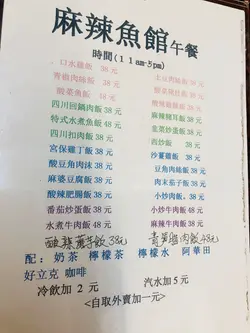 麻辣魚館午餐
時間(11am-5pm)
口水雞飯 38元
土豆肉絲飯 38元
青椒肉絲飯 38元
飯 38元
酸菜魚飯 38元
飯 38元
四川回鍋肉飯 38元
麻辣豬耳飯 38元
特式水煮魚飯 48元
韭菜炒蛋飯 38元
四川扣肉飯 38元
四飯 38元
宮保雞丁飯 38元
沙薑雞飯 38元
酸豆角肉沫飯 38元
豆角肉絲飯 38元
麻婆豆腐飯 38元
肉末茄子飯 38元
酸辣肥腸飯 38元
小炒肉飯 38元
番茄炒蛋飯 38元
小炒牛肉飯 48元
水煮牛肉飯 48元
牛肉飯 48元
酸辣蕨芋飯 38元
肉飯 48元
配: 奶茶 檸檬茶 檸檬水 阿華田
好立克 咖啡
冷飲加 2 元 汽水加 5 元
<自取外賣加一元>